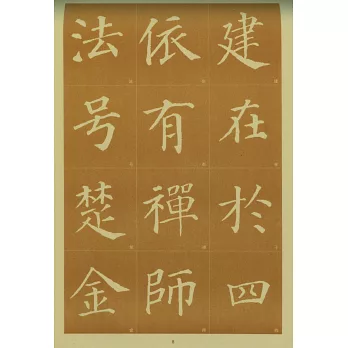 建在於四
依有禪師
法号楚金